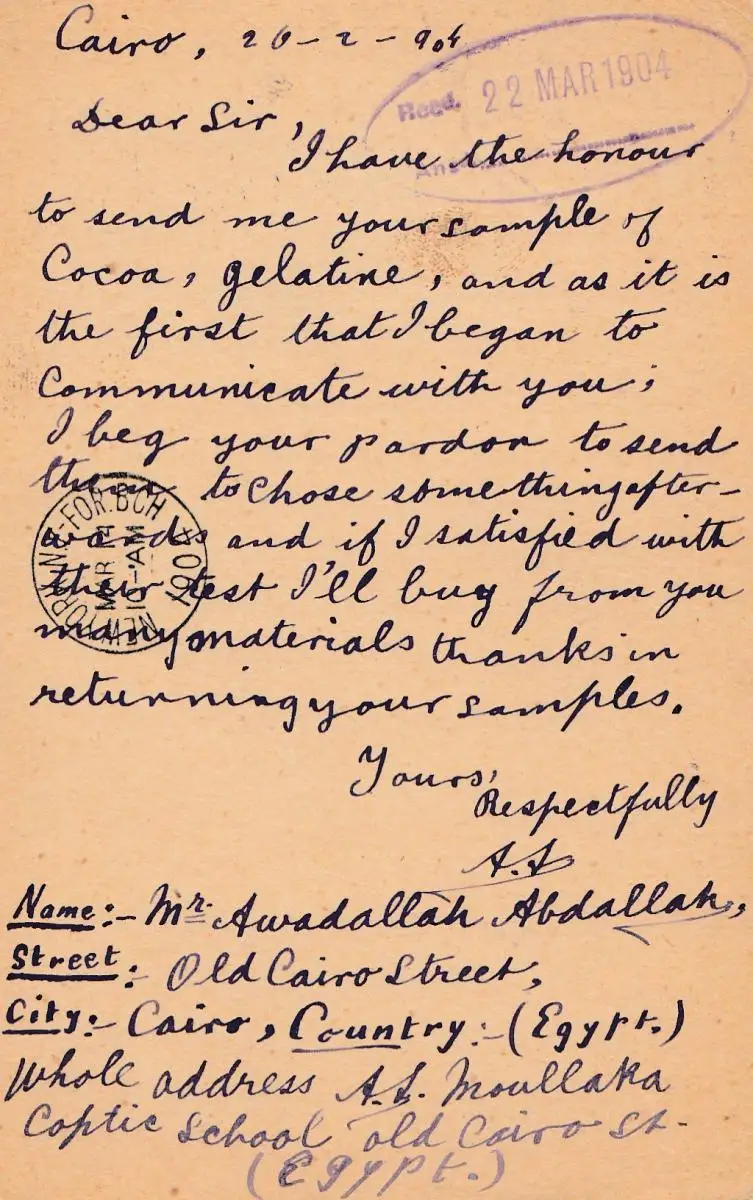 Cairo, 20-2-904
Recd. 22 MAR 1904
Dear Sir,
I have the honour
to send me your sample of
Cocoa, gelatine, and as it is
the first that I began to
communicate with you;
I beg your pardon to send
them to chose something after-
wards and if I satisfied with
their test I'll buy from you
many materials thanks in
returning your samples.
NEW YORK, N.Y.-FOR.BCH
MAR 21
10-AM
1904
Yours,
Respectfully
Name:- Mr. Awadallah Abdallah,
Street:- Old Cairo Street,
City:- Cairo, Country:- (Egypt.)
Whole address Moullaka
Coptic School old Cairo St.
(Egypt.)